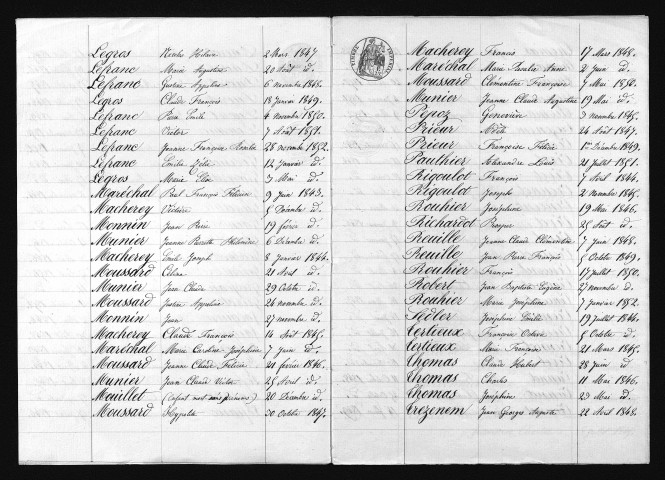 Legros Hilaire 2 Mars 1847
Lefranc Marie Augustine 20 Août id.
Lefranc Gustave Hypolite 6 novembre 1848.
Legros Claude François 18 Janvier 1849.
Lefranc Pierre Emile 4 novembre 1850.
Lefranc Victor 7 Août 1851.
Lefranc Jeanne Françoise 28 novembre 1852.
Lefranc Emilie Zélie 12 Janvier id.
Legros Marie Elise 3 Mai id.
Maréchal Paul François Félicien 9 Juin 1843.
Macherey Victoire 5 Décembre id.
Monnin Jean Pierre 19 février id.
Munier Jeanne Pierrette Philomène 6 Décembre id.
Macherey Emile Joseph 8 Janvier 1844.
Moussard Célina 21 Avril id.
Munier Jean Claude 29 Octobre id.
Moussard Justin Hypolite 26 novembre id.
Monnin Jean 27 novembre id.
Macherey Claude François 14 Août 1845.
Maréchal Marie Caroline Joséphine 7 Juin id.
Moussard Jeanne Claude Félicie 21 février 1846.
Munier Jean Claude Victor 25 Avril id.
Mouillet (enfant mort sans prénoms) 20 Décembre id.
Moussard Hypolite 30 Octobre 1847.
Macherey Francis 17 Mars 1848.
Maréchal Marie Anne 2 Juin id.
Moussard Clémentine Françoise 7 Mai 1850.
Munier Jeanne Claude Augustine 19 Mai id.
Pépioz Geneviève 3 novembre 1845.
Prieur 24 Août 1847.
Prieur Françoise Félicie 1er Décembre 1849.
Paulhier Alexandre Louis 21 Juillet 1851.
Rigoulot François 7 Avril 1844.
Rigoulot Joseph 2 novembre 1845.
Rouhier Joséphine 19 Mai 1846.
Richardot Prosper 25 Août id.
Reuille Jeanne Claude Clémentine 7 Juin 1848.
Reuille Jean Pierre François 5 Octobre 1849.
Rouhier François 17 Juillet 1850.
Robert Jean Baptiste Eugène 27 novembre id.
Rouhier Marie Joséphine 7 Janvier 1852.
Sedler Joséphine Emilie 19 Juillet 1844.
Tertieux François Octave 5 Octobre id.
Tertieux Marie Françoise 21 Mars 1845.
Thomas Claude Hubert 28 Juin id.
Thomas Charles 11 Mai 1846.
Thomas Joséphine 23 Mai id.
Trezenem Jean Georges Auguste 22 Avril 1848.